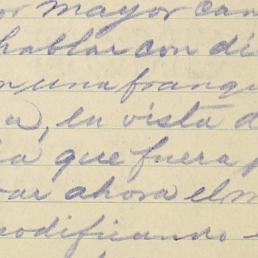 or mayor can
hablar con di
n una franqu
a, en vista d
ia que fuera p
ar ahora el m
odificando